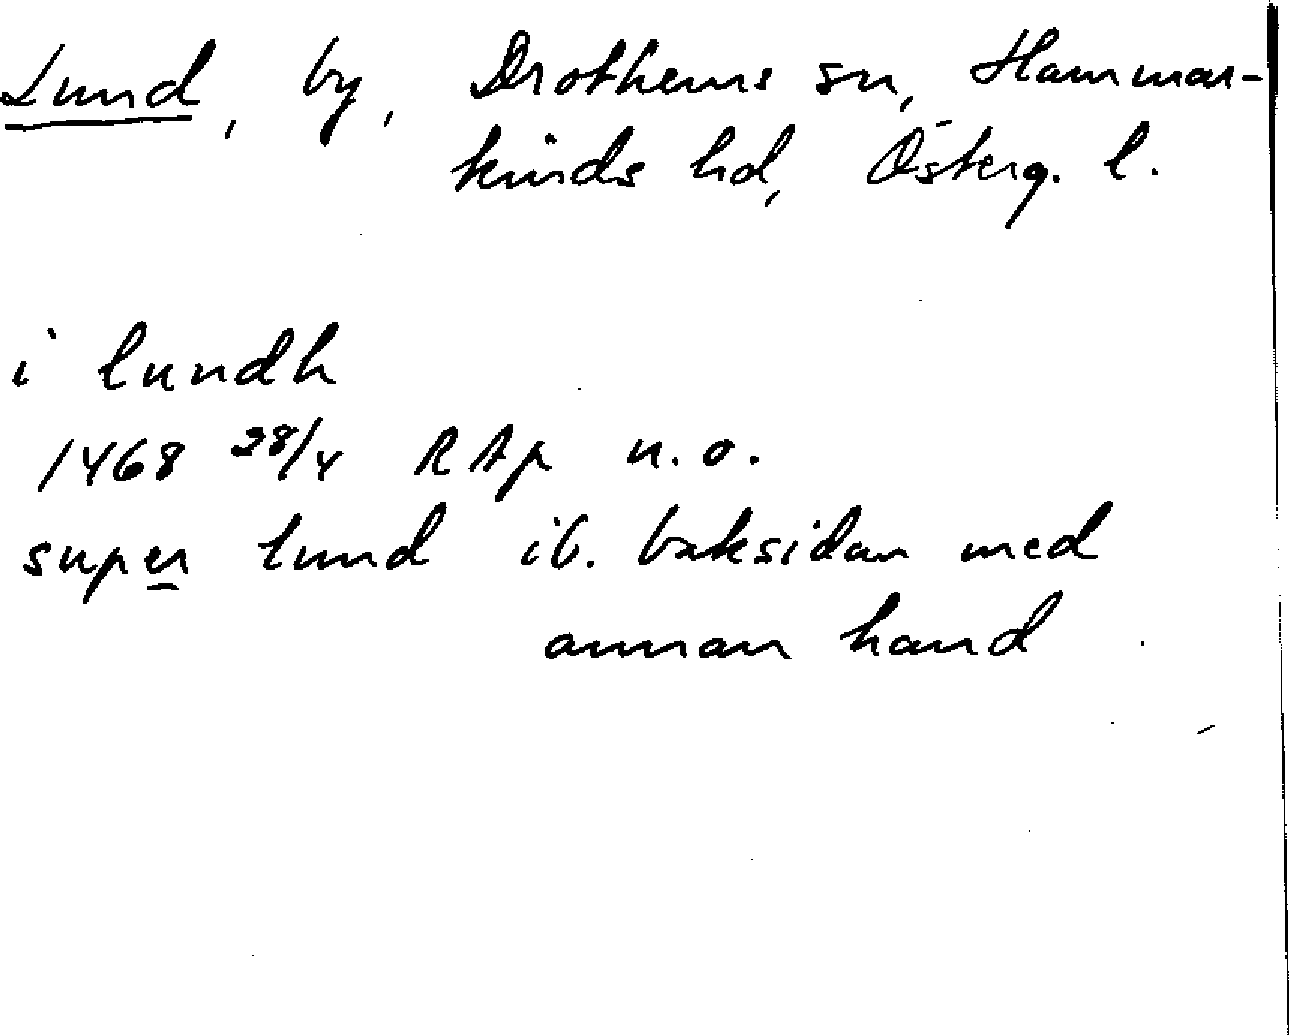 Lund, by, Drothems sn, Hammar-
kinds hd, Österg. l.
i lundh
1468 28/4 RAp n.o.
super lund ib. baksidan med
annan hand